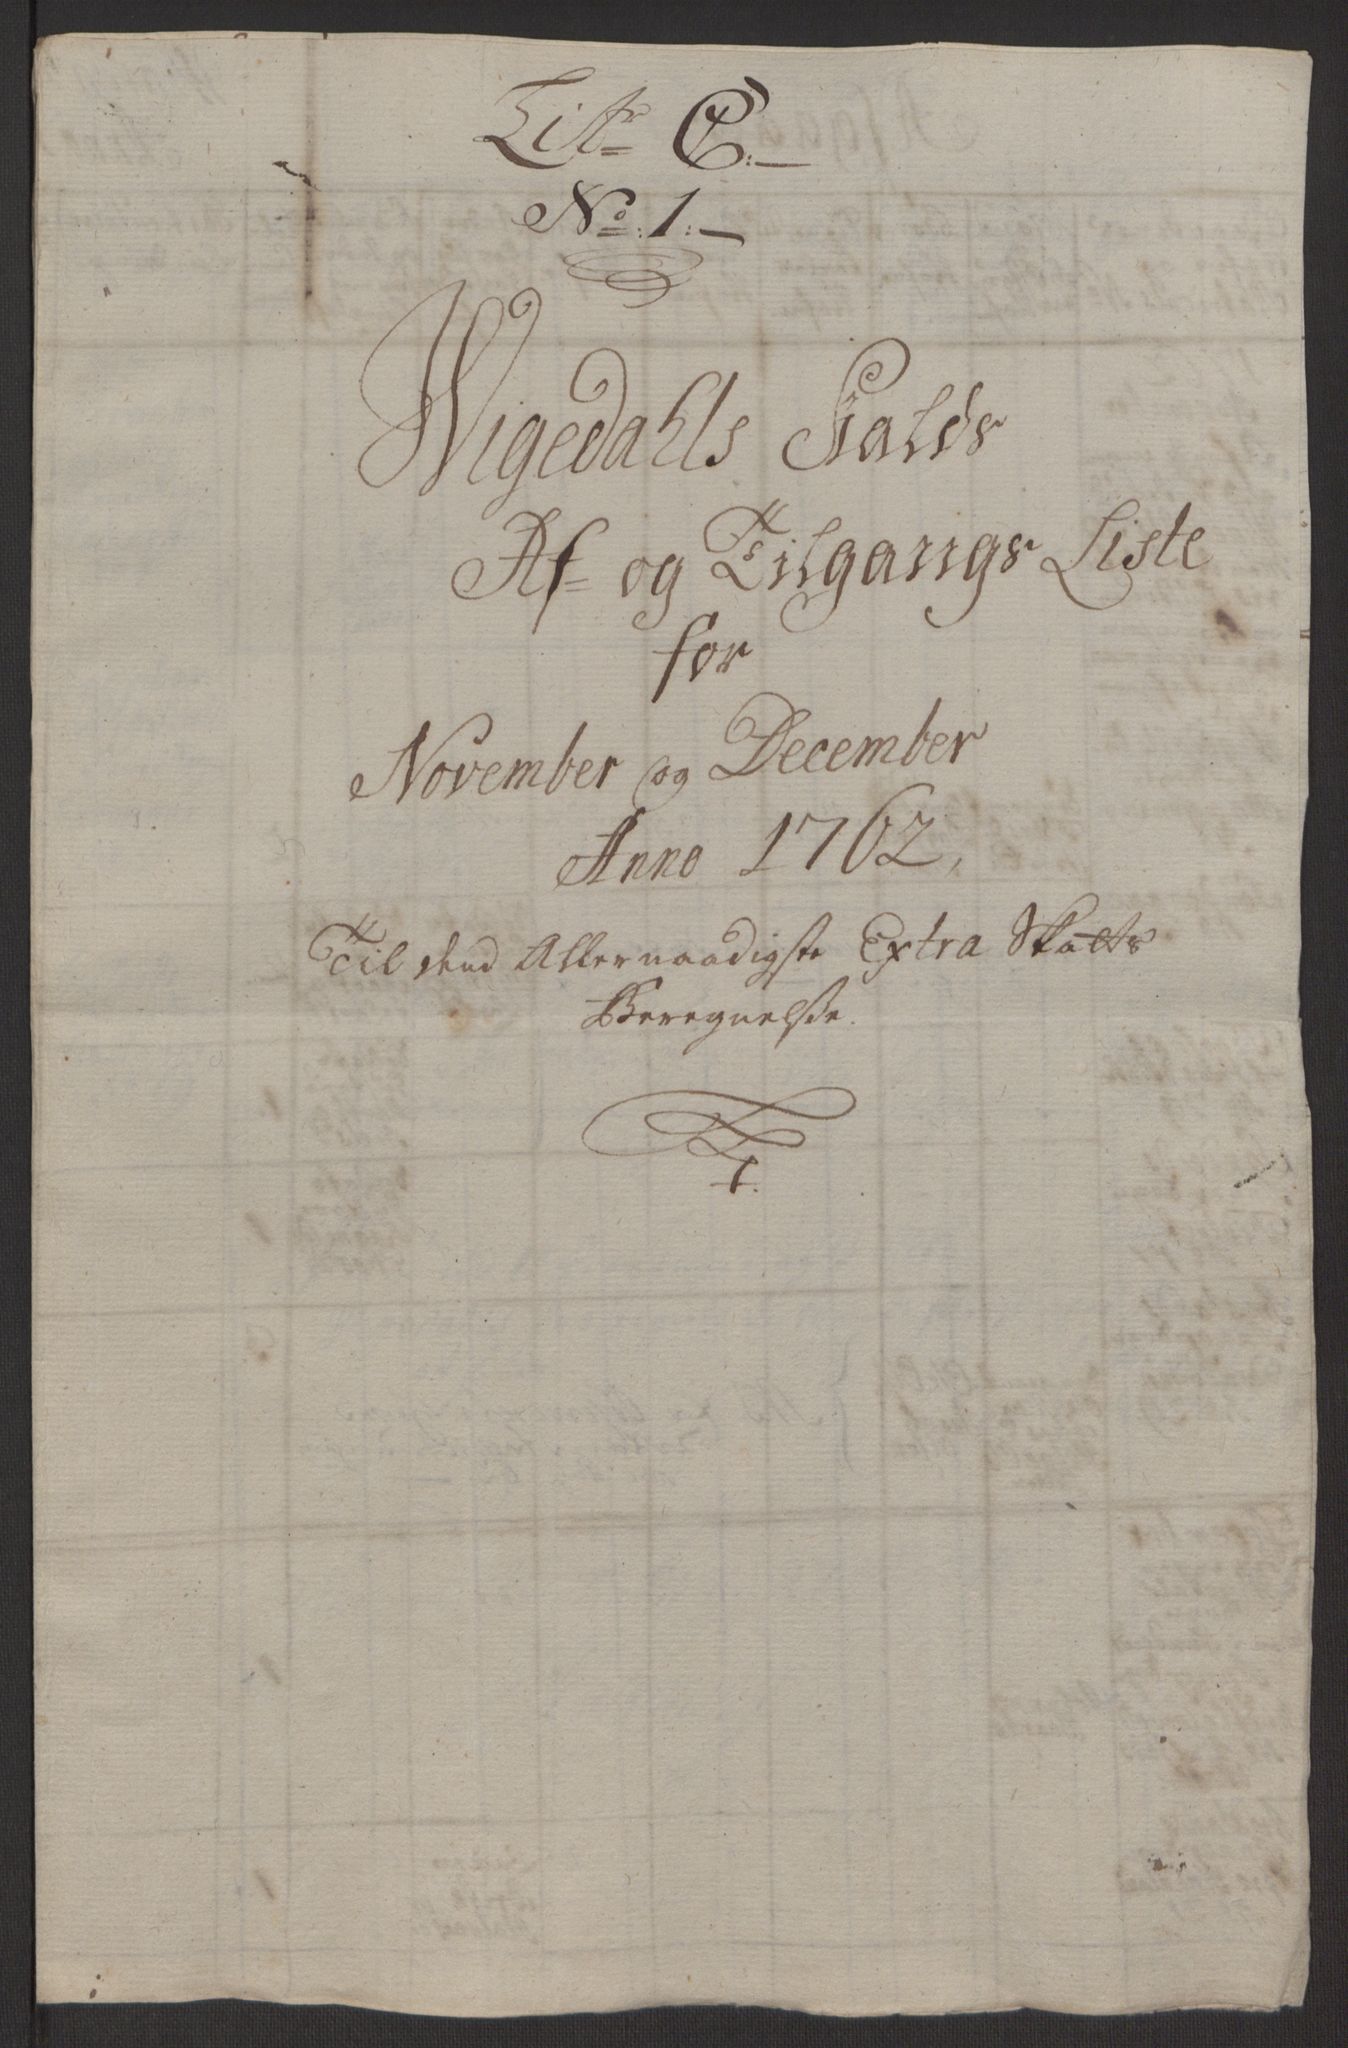 Litr C.
No. 1.
Wigedahls Gialds
Af- og Tilgangs Liste
for
November og December
Anno 1762,
Til dend Allernaadigste Extra Skatts
Beregnelsse.